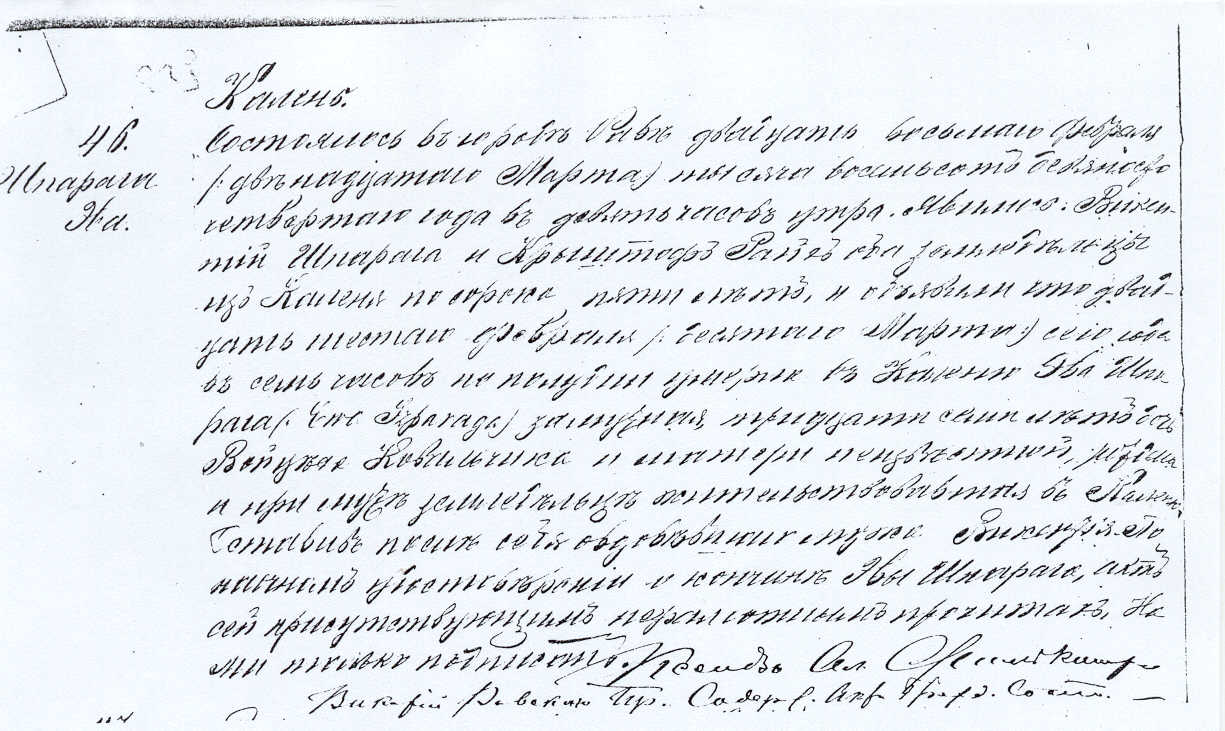 Калень.
46.
Шпарага
Эва.
Состоялось въ городѣ Равѣ двайцать восьмаго Февраля
/: двѣнадцатаго Марта :/ тысяча восемьсотъ девяносто
четвертаго года въ девять часовъ утра. Явились: Викен-
тій Шпарага и Крыштофъ оба земледѣльцы
изъ Каленя по сорока пяти лѣтъ, и объявили что двай-
цать шестаго Февраля /: десятаго Марта :/ сего года
въ семь часовъ по полудни умерла въ Каленю Эва Шпа-
рага замужная, тридцати семи лѣтъ дочь
Войцѣха Ковальчика и матери неизвѣстной,
и при мужѣ земледѣльцѣ жительствовавшая въ Каленю.
Оставивъ послѣ себя овдовѣвшаго мужа Викентія. По
наочномъ удостовѣреніи о кончинѣ Эвы Шпарага, актъ
сей присутствующимъ неграмотнымъ прочитанъ, На-
ми только подписанъ. Ксендзъ Ал.
Викарій Равскаго Пр. Содер. Акт. Гражд. Сост.